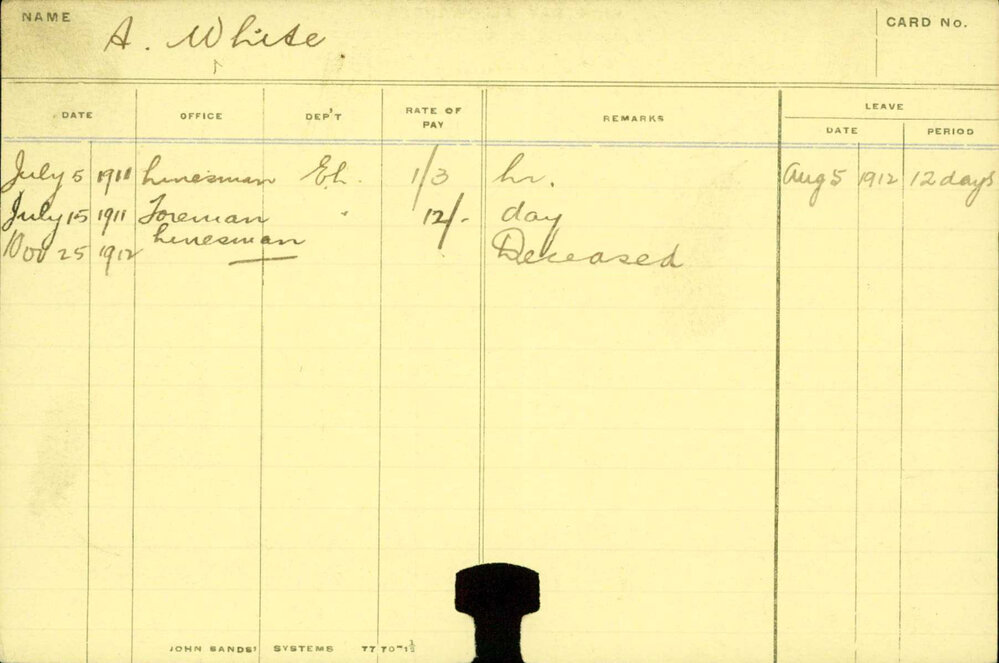 NAME
A. White
CARD No.
DATE OFFICE DEP'T RATE OF PAY REMARKS LEAVE
DATE PERIOD
July 5 1911 Linesman E.L. 1/3 hr. Aug 5 1912 12 days
July 15 1911 Foreman " 12/- day
Linesman
Nov 25 1912 Deceased
JOHN SANDS' SYSTEMS